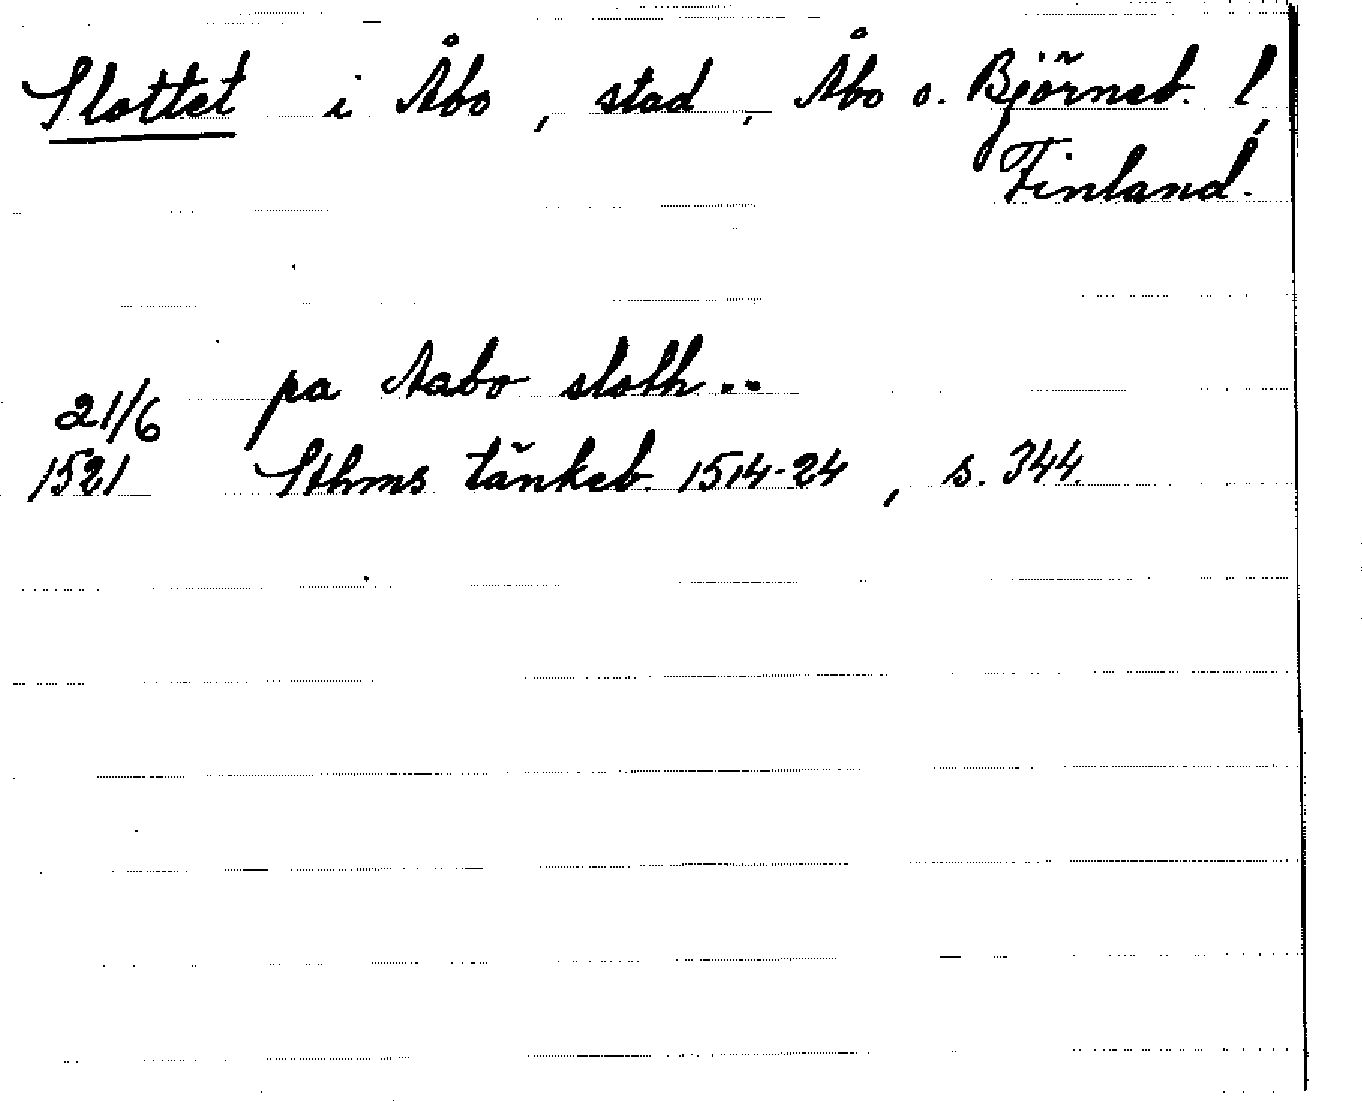 Slottet i Åbo, stad, Åbo o. Björneb. l,
Finland.
21/6 pa Aabo sloth..
1521 Sthms tänkeb. 1514-24, s. 344.